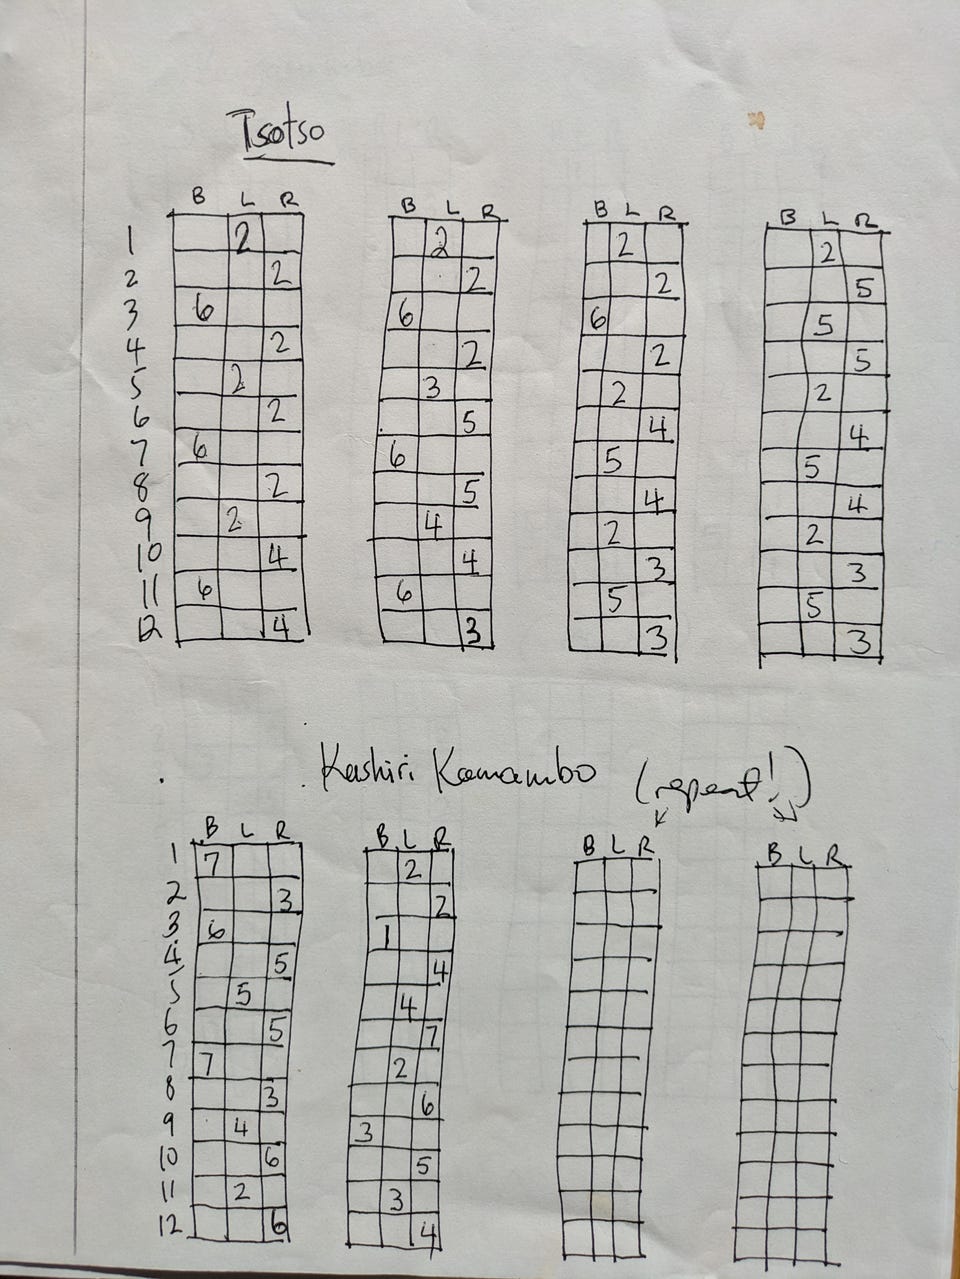 Tsotso
B L R B L R B L R B L R
1 2 2 2 2
2 2 2 2 5
3 6 6 6 5
4 2 2 2 5
5 2 3 2 2
6 2 5 4 4
7 6 6 5 5
8 2 5 4 4
9 2 4 2 2
10 4 4 3 3
11 6 6 5 5
12 4 3 3 3
Kashiri Kamambo (repeat!)
B L R B L R B L R B L R
1 7 2
2 3 2
3 6 1
4 5 4
5 5 4
6 5 7
7 7 2
8 3 6
9 4 3
10 6 5
11 2 3
12 6 4